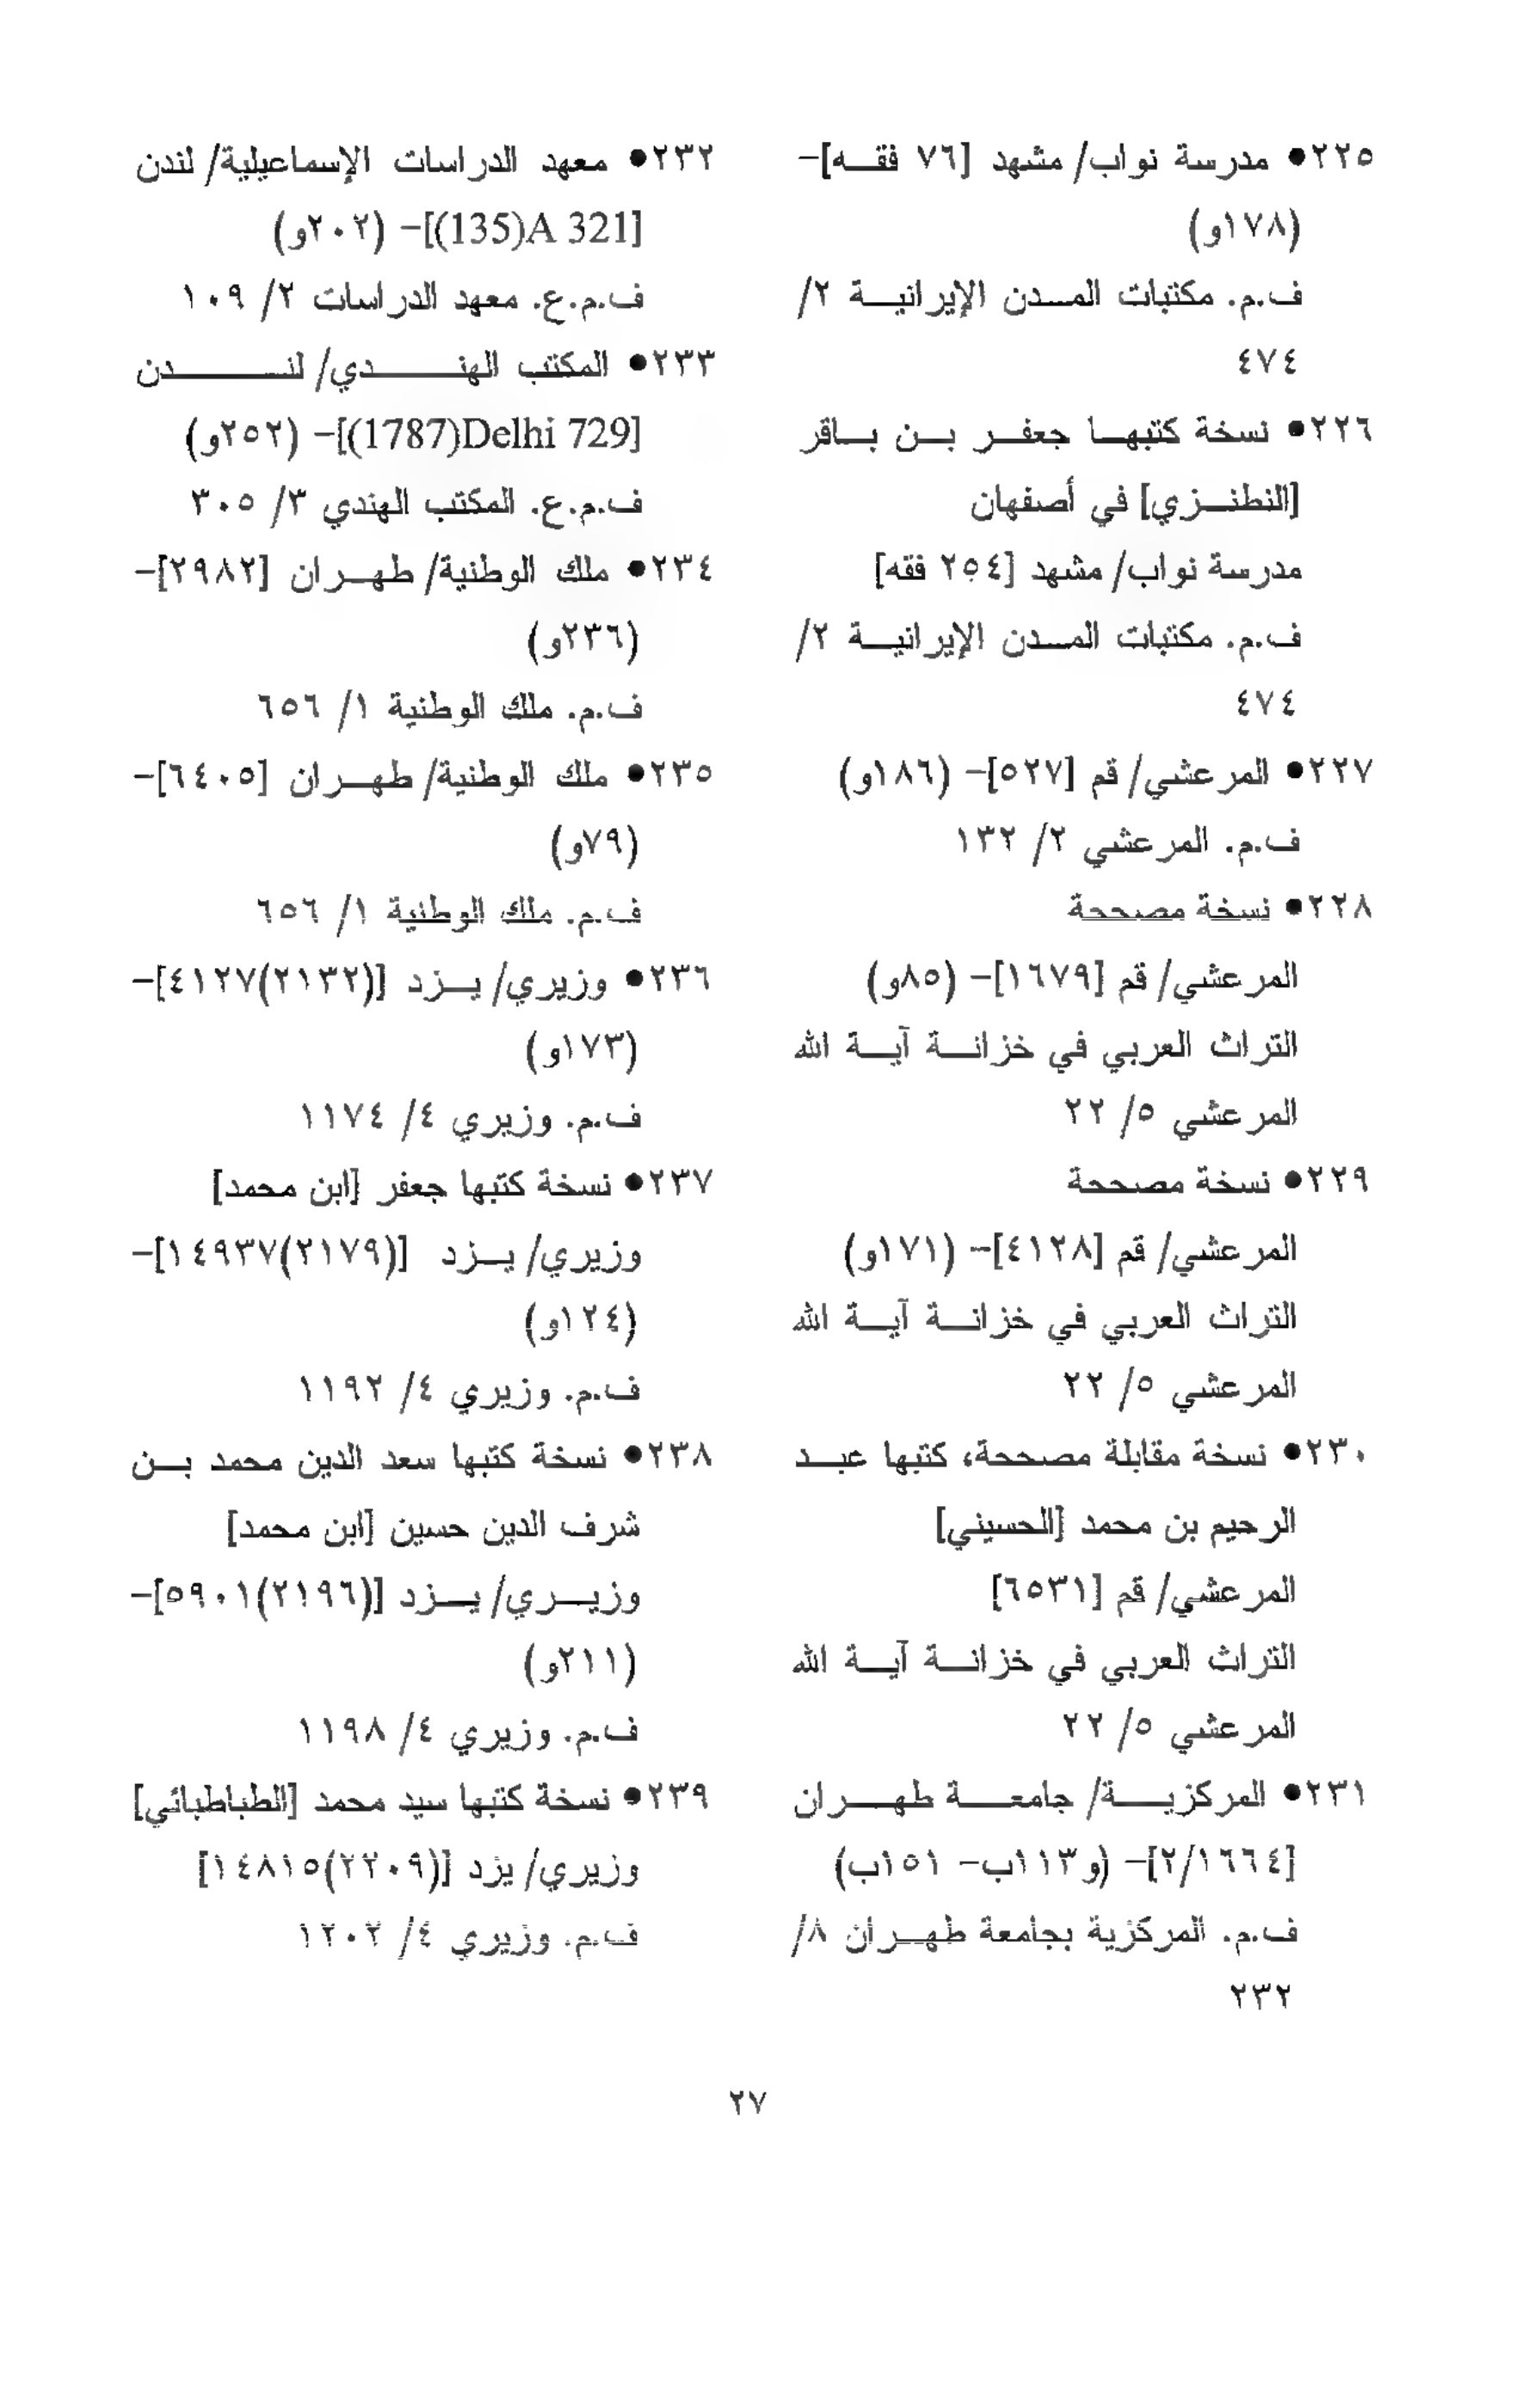 ٢٢٥● مدرسة نواب/ مشهد [٧٦ فقه]-
(١٧٨و)
ف.م. مكتبات المدن الإيرانية ٢/
٤٧٤
٢٢٦● نسخة كتبها جعفر بن باقر
[النطنزي] في أصفهان
مدرسة نواب/ مشهد [٢٥٤ فقه]
ف.م. مكتبات المدن الإيرانية ٢/
٤٧٤
٢٢٧● المرعشي/ قم [٥٢٧]- (١٨٦و)
ف.م. المرعشي ٢/ ١٣٢
٢٢٨● نسخة مصححة
المرعشي/ قم [١٦٧٩]- (٨٥و)
التراث العربي في خزانة آية الله
المرعشي ٥/ ٢٢
٢٢٩● نسخة مصححة
المرعشي/ قم [٤١٢٨]- (١٧١و)
التراث العربي في خزانة آية الله
المرعشي ٥/ ٢٢
٢٣٠● نسخة مقابلة مصححة، كتبها عبد
الرحيم بن محمد [الحسيني]
المرعشي/ قم [٦٥٣١]
التراث العربي في خزانة آية الله
المرعشي ٥/ ٢٢
٢٣١● المركزية/ جامعة طهران
[٢/١٦٦٤]- (و١١٣ب- ١٥١ب)
ف.م. المركزية بجامعة طهران ٨/
٢٣٢
٢٣٢● معهد الدراسات الإسماعيلية/ لندن
[(135)A 321]- (٢٠٢و)
ف.م.ع. معهد الدراسات ٢/ ١٠٩
٢٣٣● المكتب الهندي/ لندن
[(1787)Delhi 729]- (٢٥٢و)
ف.م.ع. المكتب الهندي ٣/ ٣٠٥
٢٣٤● ملك الوطنية/ طهران [٢٩٨٢]-
(٢٣٦و)
ف.م. ملك الوطنية ١/ ٦٥٦
٢٣٥● ملك الوطنية/ طهران [٦٤٠٥]-
(٧٩و)
ف.م. ملك الوطنية ١/ ٦٥٦
٢٣٦● وزيري/ يزد [(٢١٣٢)٤١٢٧]-
(١٧٣و)
ف.م. وزيري ٤/ ١١٧٤
٢٣٧● نسخة كتبها جعفر [ابن محمد]
وزيري/ يزد [(٢١٧٩)١٤٩٣٧]-
(١٢٤و)
ف.م. وزيري ٤/ ١١٩٢
٢٣٨● نسخة كتبها سعد الدين محمد بن
شرف الدين حسين [ابن محمد]
وزيري/ يزد [(٢١٩٦)٥٩٠١]-
(٢١١و)
ف.م. وزيري ٤/ ١١٩٨
٢٣٩● نسخة كتبها سيد محمد [الطباطبائي]
وزيري/ يزد [(٢٢٠٩)١٤٨١٥]
ف.م. وزيري ٤/ ١٢٠٢
٢٧